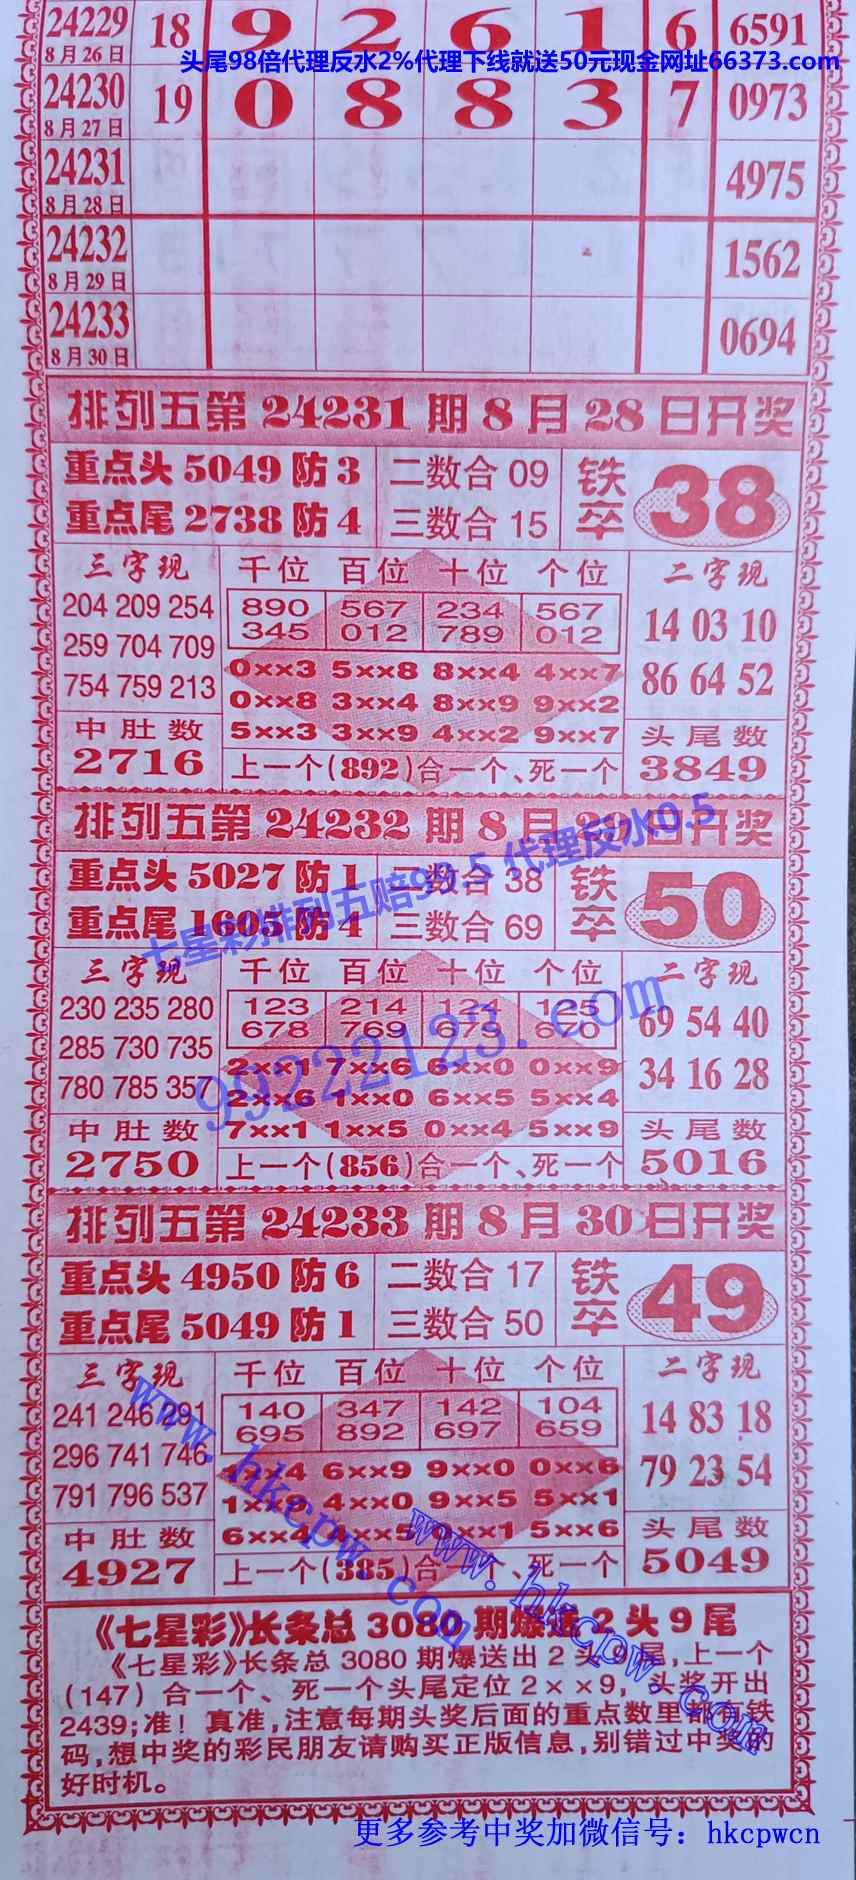 24229 18 9 2 6 1 6 6591
8月26日
头尾98倍代理反水2%代理下线就送50元现金网址66373.com
24230 19 0 8 8 3 7 0973
8月27日
24231 4975
8月28日
24232 1562
8月29日
24233 0694
8月30日
排列五第24231期8月28日开奖
重点头5049防3 二数合09 铁卒 38
重点尾2738防4 三数合15
三字现 千位 百位 十位 个位 二字现
204 209 254 890 567 234 567 14 03 10
259 704 709 345 012 789 012
754 759 213 0××3 5××8 8××4 4××7 86 64 52
0××8 3××4 8××9 9××2
中肚数 5××3 3××9 4××2 9××7 头尾数
2716 上一个(892)合一个、死一个 3849
排列五第24232期8月29日开奖
重点头5027防1 二数合38 铁卒 50
重点尾1605防4 三数合69
七星彩排列五赔98.5 代理反水0.5
三字现 千位 百位 十位 个位 二字现
230 235 280 123 214 124 125 69 54 40
285 730 735 678 769 679 670
780 785 357 2××1 7××6 6××0 0××9 34 16 28
2××6 1××0 6××5 5××4
99222123.com
中肚数 7××1 1××5 0××4 5××9 头尾数
2750 上一个(856)合一个、死一个 5016
排列五第24233期8月30日开奖
重点头4950防6 二数合17 铁卒 49
重点尾5049防1 三数合50
三字现 千位 百位 十位 个位 二字现
241 246 291 140 347 142 104 14 83 18
296 741 746 695 892 697 659
791 796 537 6××9 9××0 0××6 79 23 54
4××0 9××5 5××1
中肚数 6××4 5××6 头尾数
4927 上一个(385)合一个、死一个 5049
www.hkcpw.com
www.hkcpw.com
《七星彩》长条总3080期爆送2头9尾
《七星彩》长条总3080期爆送出2头9尾,上一个
(147)合一个、死一个头尾定位2××9,头奖开出
2439;准!真准,注意每期头奖后面的重点数里都有铁
码,想中奖的彩民朋友请购买正版信息,别错过中奖的
好时机。
更多参考中奖加微信号：hkcpwcn